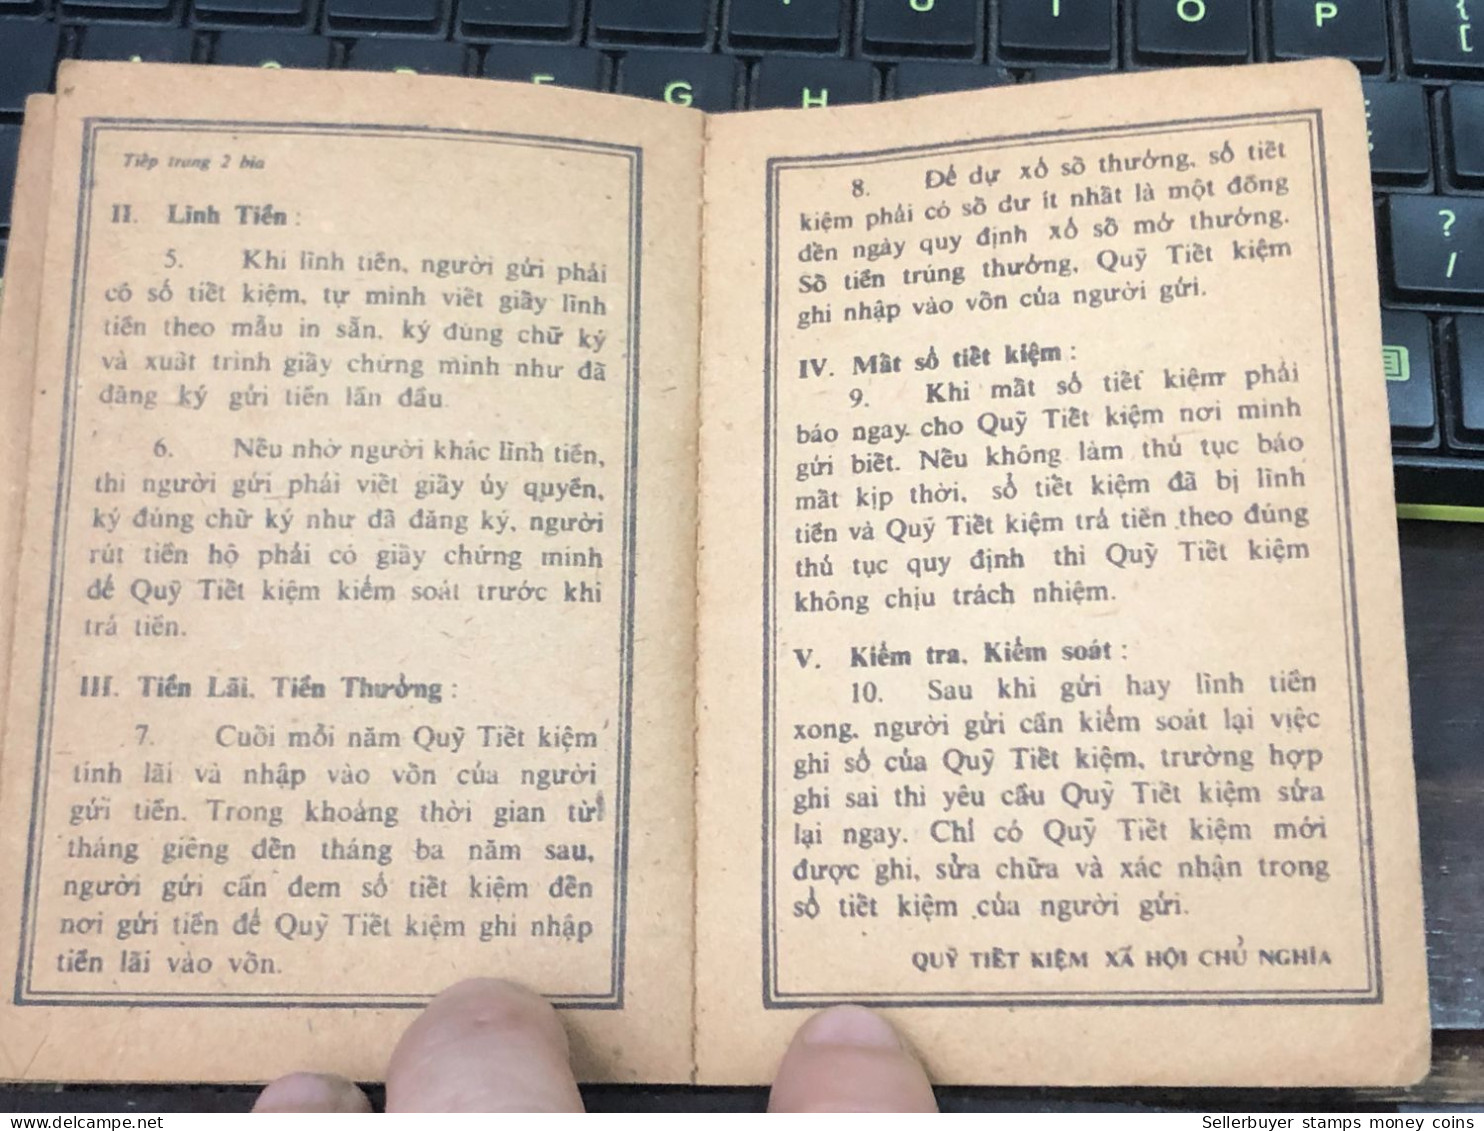 Tiếp trang 2 bìa
II. Lĩnh Tiền :
5. Khi lĩnh tiền, người gửi phải
có sổ tiết kiệm, tự mình viết giấy lĩnh
tiền theo mẫu in sẵn, ký đúng chữ ký
và xuất trình giấy chứng minh như đã
đăng ký gửi tiền lần đầu.
6. Nếu nhờ người khác lĩnh tiền,
thì người gửi phải viết giấy ủy quyền,
ký đúng chữ ký như đã đăng ký, người
rút tiền hộ phải có giấy chứng minh
để Quỹ Tiết kiệm kiểm soát trước khi
trả tiền.
III. Tiền Lãi, Tiền Thưởng :
7. Cuối mỗi năm Quỹ Tiết kiệm
tính lãi và nhập vào vốn của người
gửi tiền. Trong khoảng thời gian từ
tháng giêng đến tháng ba năm sau,
người gửi cần đem sổ tiết kiệm đến
nơi gửi tiền để Quỹ Tiết kiệm ghi nhập
tiền lãi vào vốn.
8. Để dự xổ số thưởng, sổ tiết
kiệm phải có số dư ít nhất là một đồng
đến ngày quy định xổ số mở thưởng.
Số tiền trúng thưởng, Quỹ Tiết kiệm
ghi nhập vào vốn của người gửi.
IV. Mất sổ tiết kiệm :
9. Khi mất sổ tiết kiệm phải
báo ngay cho Quỹ Tiết kiệm nơi mình
gửi biết. Nếu không làm thủ tục báo
mất kịp thời, sổ tiết kiệm đã bị lĩnh
tiền và Quỹ Tiết kiệm trả tiền theo đúng
thủ tục quy định thì Quỹ Tiết kiệm
không chịu trách nhiệm.
V. Kiểm tra, Kiểm soát :
10. Sau khi gửi hay lĩnh tiền
xong, người gửi cần kiểm soát lại việc
ghi sổ của Quỹ Tiết kiệm, trường hợp
ghi sai thì yêu cầu Quỹ Tiết kiệm sửa
lại ngay. Chỉ có Quỹ Tiết kiệm mới
được ghi, sửa chữa và xác nhận trong
sổ tiết kiệm của người gửi.
QUỸ TIẾT KIỆM XÃ HỘI CHỦ NGHĨA
U I O P { [
G H
? /
Sellerbuyer stamps money coins
www.delcampe.net